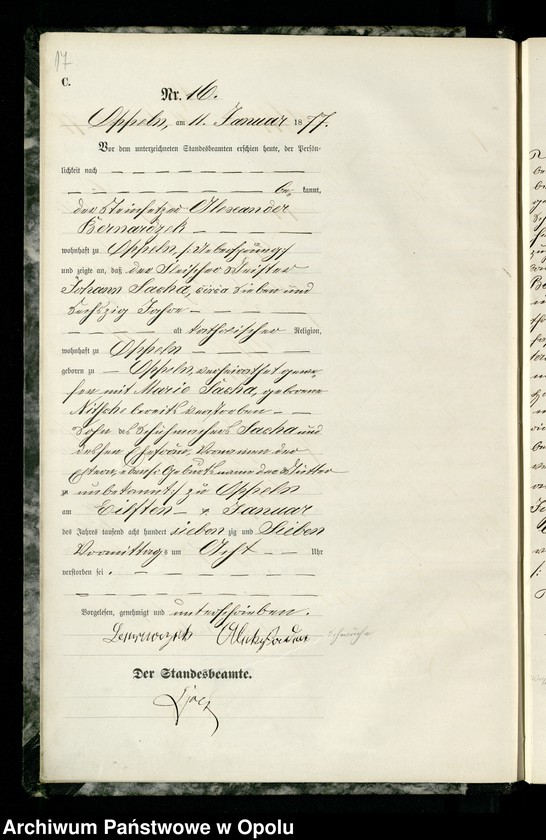 17
C.
Nr. 16.
Oppeln, am 11. Januar 1877.
Vor dem unterzeichneten Standesbeamten erschien heute, der Persön-
lichkeit nach
be kannt,
der Steinsetzer Alexander
Bernarczyk
wohnhaft zu Oppeln,
und zeigte an, daß der Fleischer Meister
Johann Sacha, circa sieben und
sechszig Jahre
alt katholischer Religion,
wohnhaft zu Oppeln
geboren zu Oppeln, verheirathet gewe-
sen mit Marie Sacha, geborene
Nitsche bereits verstorben
Sohn des Schuhmachers Sacha und
dessen Ehefrau, Vornamen der
Eltern, ebenso Geburtsname der Mutter
unbekannt, zu Oppeln
am Eilften Januar
des Jahres tausend acht hundert sieben zig und Sieben
Vormittags um Acht Uhr
verstorben sei.
Vorgelesen, genehmigt und unterschrieben.
Der Standesbeamte.
Archiwum Państwowe w Opolu